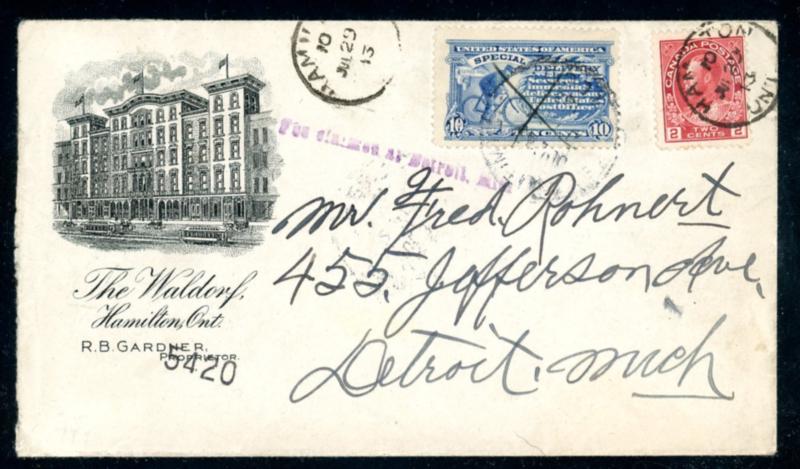 HAM
10
JUL 29
13
UNITED STATES OF AMERICA
SPECIAL DELIVERY
10 TEN CENTS 10
CANADA POSTAGE
2 TWO CENTS 2
HAMILTON
Fee claimed at Detroit, Mich.
The Waldorf,
Hamilton, Ont.
R.B. GARDNER,
PROPRIETOR.
5420
Mr. Fred. Rohnert
455. Jefferson Ave,
Detroit, Mich